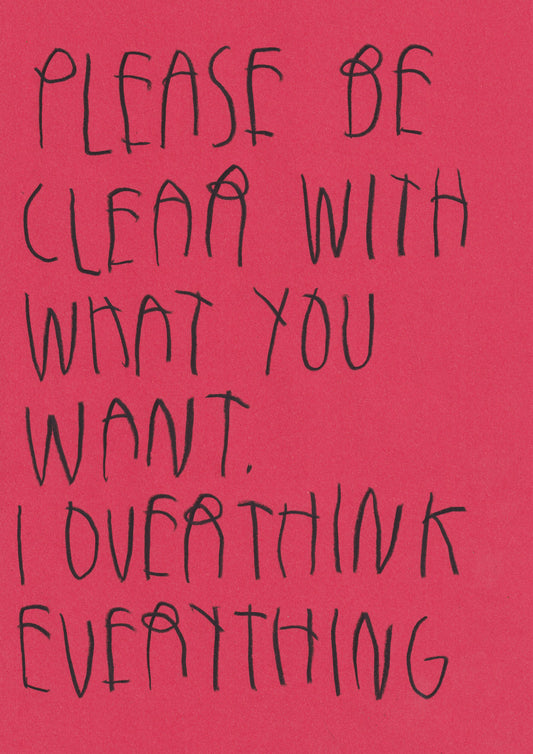 PLEASE BE
CLEAR WITH
WHAT YOU
WANT.
I OVERTHINK
EVERYTHING